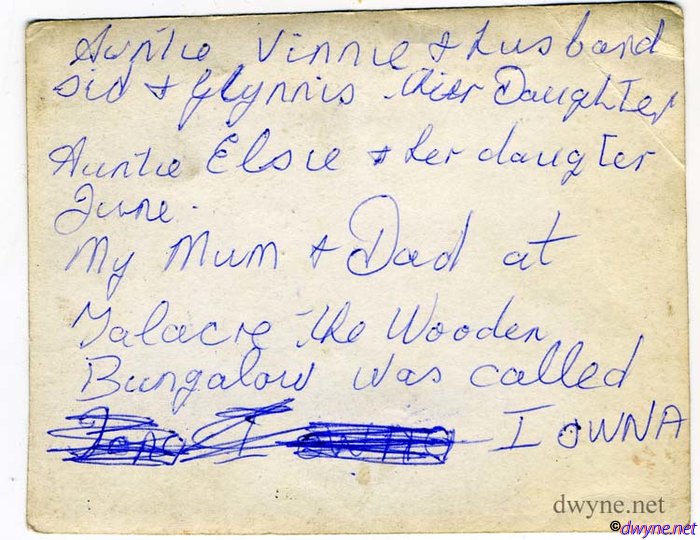 Auntie Vinnie & husband
Sid & Glynnis thier Daughter
Auntie Elsie & her daugter
June.
My Mum & Dad at
Talacre the Wooden
Bungalow was called
I OWNA
dwyne.net
©dwyne.net